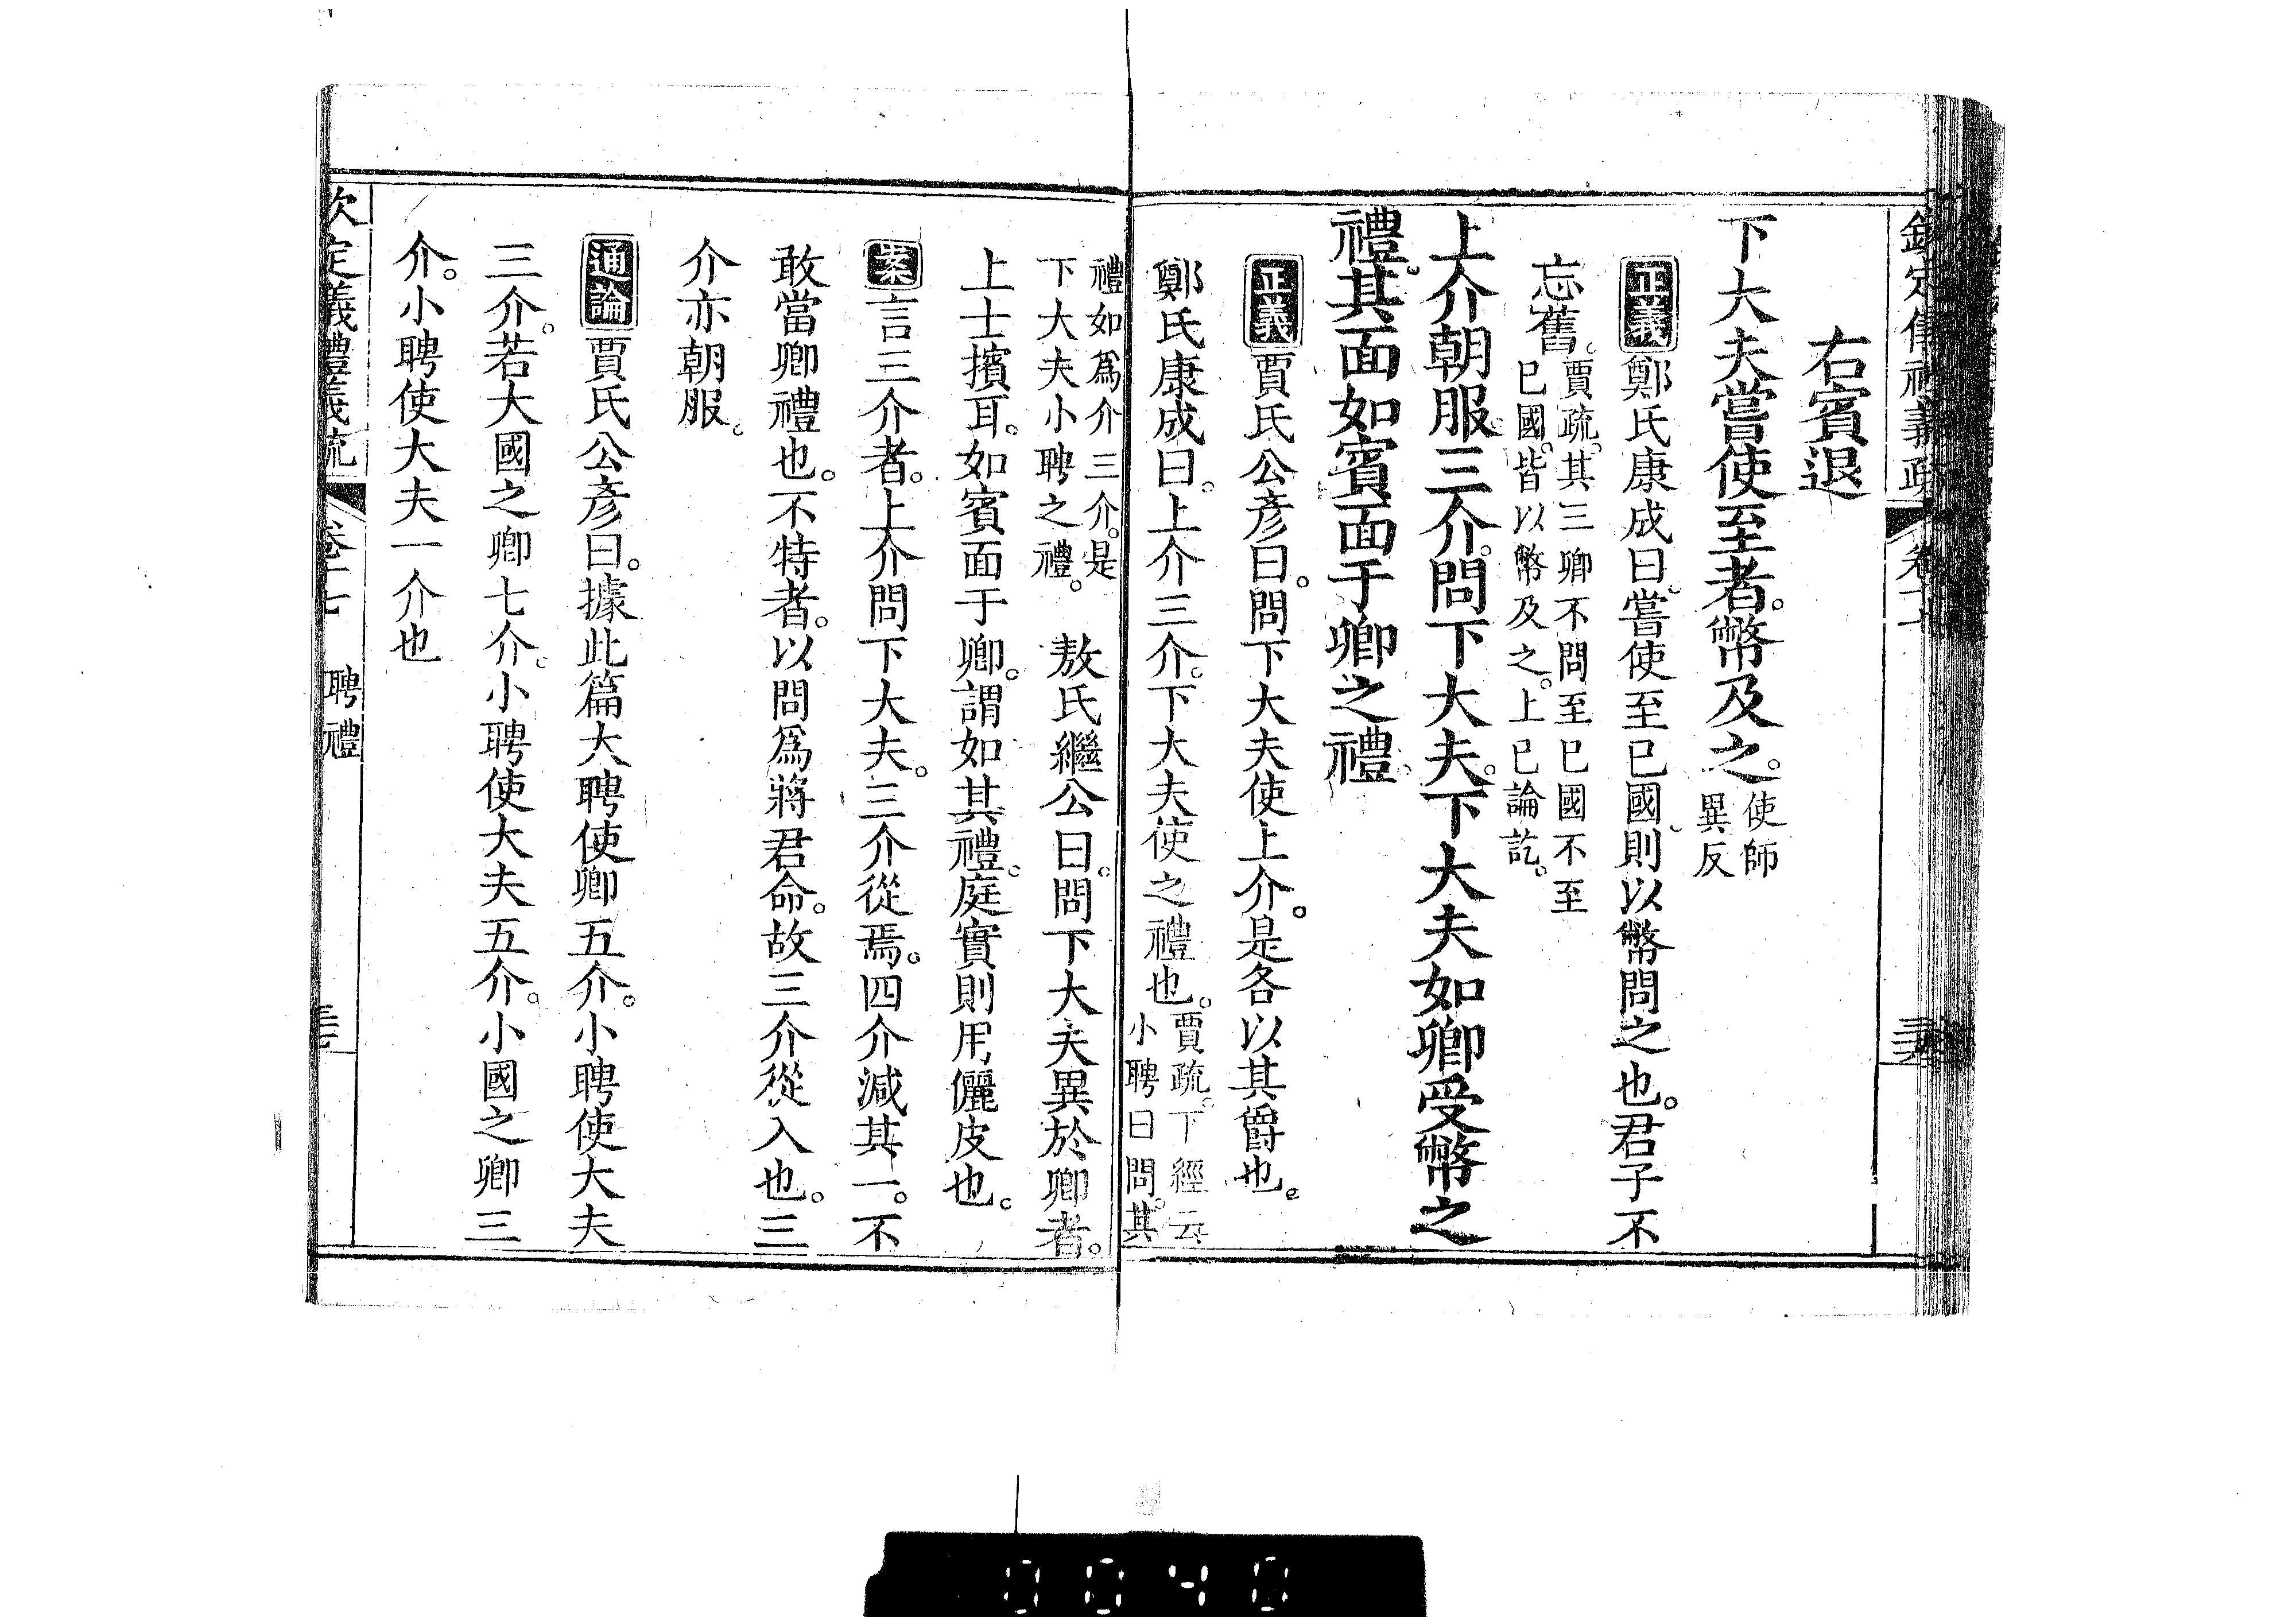 右賓退
下大夫嘗使至者。幣及之。使師
異反
正義鄭氏康成曰。嘗使至己國。則以幣問之也。君子不
忘舊。賈疏。其三卿不問至已國不至
已國。皆以幣及之。上已論訖。
上介朝服。三介。問下大夫。下大夫如卿受幣之
禮。其面如賓面于卿之禮。
正義賈氏公彥曰。問下大夫使上介。是各以其爵也。
鄭氏康成曰。上介三介。下大夫使之禮也。賈疏。下經云
小聘曰問。其
禮如爲介三介。是
下大夫小聘之禮。
敖氏繼公曰。問下大夫異於卿者。
上士擯耳。如賓面于卿。謂如其禮。庭實則用儷皮也。
案言三介者。上介問下大夫。三介從焉。四介減其一。不
敢當卿禮也。不特者。以問爲將君命。故三介從入也。三
介亦朝服。
通論賈氏公彥曰。據此篇大聘使卿五介。小聘使大夫
三介。若大國之卿七介。小聘使大夫五介。小國之卿三
介。小聘使大夫一介也
欽定義禮義疏 卷十七 聘禮 三七
0040